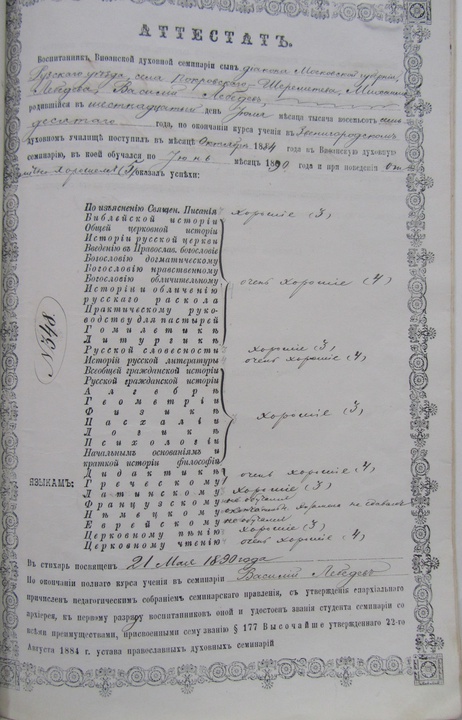 АТТЕСТАТЪ.
Воспитанникъ Виѳанской духовной семинаріи сынъ діакона Московской губерніи,
Рузскаго уѣзда, села Покровскаго-Шереметьева, Михаила
Лебедева, Василій Лебедевъ
родившійся въ шестнадцатый день Іюня мѣсяца тысяча восемьсотъ
десятаго года, по окончаніи курса ученія въ Звенигородскомъ
духовномъ училищѣ поступилъ въ мѣсяцѣ Октябрѣ 1884 года въ Виѳанскую духовную
семинарію, въ коей обучался по Іюнь мѣсяцъ 1890 года и при поведеніи
(5) оказалъ успѣхи:
По изъясненію Священ. Писанія хорошіе (3)
Библейской исторіи
Общей церковной исторіи
Исторіи русской церкви
Введенію въ Православ. богословіе
Богословію догматическому
Богословію нравственному
Богословію обличительному очень хорошіе (4)
Исторіи и обличенію
русскаго раскола
Практическому руко-
водству для пастырей
Гомилетикѣ
Литургикѣ
Русской словесности хорошіе (3)
Исторіи русской литературы очень хорошіе (4)
Всеобщей гражданской исторіи
Русской гражданской исторіи
Алгебрѣ
Геометріи
Физикѣ хорошіе (3)
Пасхаліи
Логикѣ
Психологіи
Начальнымъ основаніямъ и
краткой исторіи философіи
Дидактикѣ очень хорошіе (4)
ЯЗЫКАМЪ:
Греческому
Латинскому хорошіе (3)
Французскому не обучался
Нѣмецкому экзамена не сдавалъ
Еврейскому не обучался
Церковному пѣнію хорошіе (3)
Церковному чтенію очень хорошіе (4)
№ 348.
Въ стихарь посвященъ 21 Мая 1890 года
По окончаніи полнаго курса ученія въ семинаріи Василій Лебедевъ
причисленъ педагогическимъ собраніемъ семинарскаго правленія, съ утвержденія епархіальнаго
архіерея, къ первому разряду воспитанниковъ оной и удостоенъ званія студента семинаріи со
всѣми преимуществами, присвоенными сему званію § 177 Высочайше утвержденнаго 22-го
Августа 1884 г. устава православныхъ духовныхъ семинарій